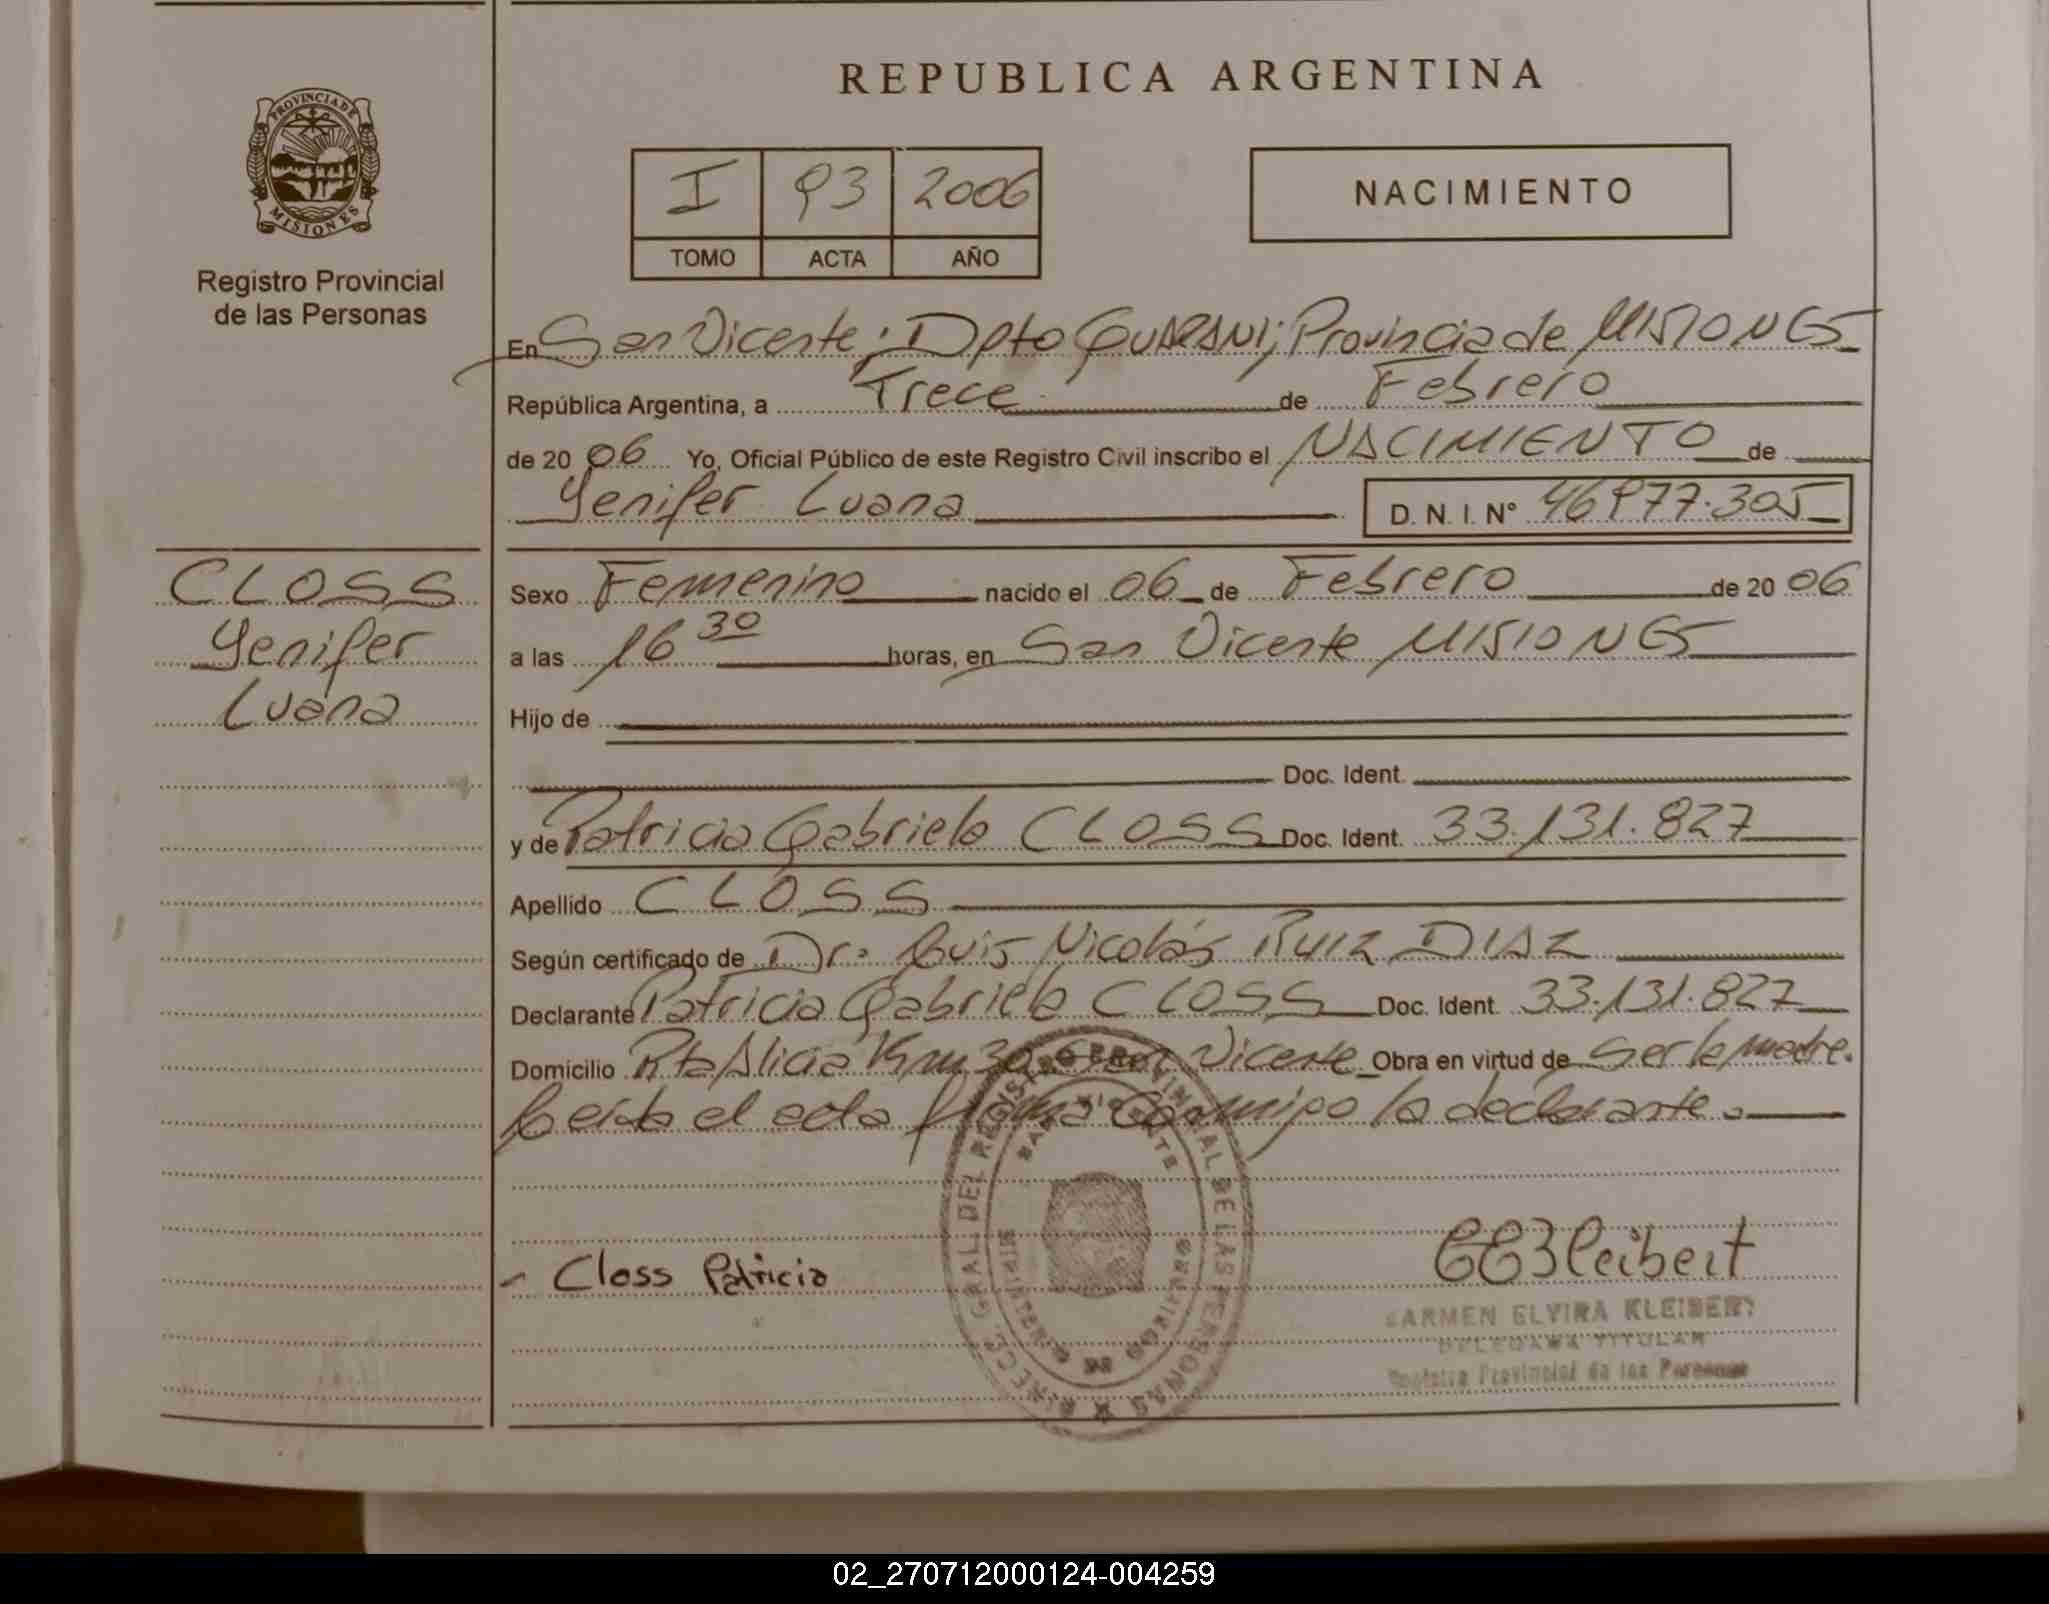 REPUBLICA ARGENTINA
PROVINCIA DE
MISIONES
Registro Provincial
de las Personas
I 93 2006
TOMO ACTA AÑO
NACIMIENTO
En San Vicente; Dpto GUARANI; Provincia de MISIONES
República Argentina, a Trece de Febrero
de 20 06 Yo, Oficial Público de este Registro Civil inscribo el NACIMIENTO de
Yenifer Luana D. N. I. N° 46977.305
CLOSS
Yenifer
Luana
Sexo Femenino nacido el 06 de Febrero de 20 06
a las 16 30 horas, en San Vicente MISIONES
Hijo de
Doc. Ident.
y de Patricia Gabriela CLOSS Doc. Ident. 33.131.827
Apellido CLOSS
Según certificado de Dr. Luis Nicolás RUIZ DIAZ
Declarante Patricia Gabriela CLOSS Doc. Ident. 33.131.827
Domicilio Pta Alicia Km 30 San Vicente Obra en virtud de ser la madre.
Leida el acta firma conmigo la declarante.
GRAL. DEL REGISTRO PROVINCIAL DE LAS PERSONAS
SAN VICENTE
MINISTERIO DE GOBIERNO
Closs Patricia
CEKleibert
CARMEN ELVIRA KLEIBERT
DELEGADA TITULAR
Registro Provincial de las Personas
02_270712000124-004259